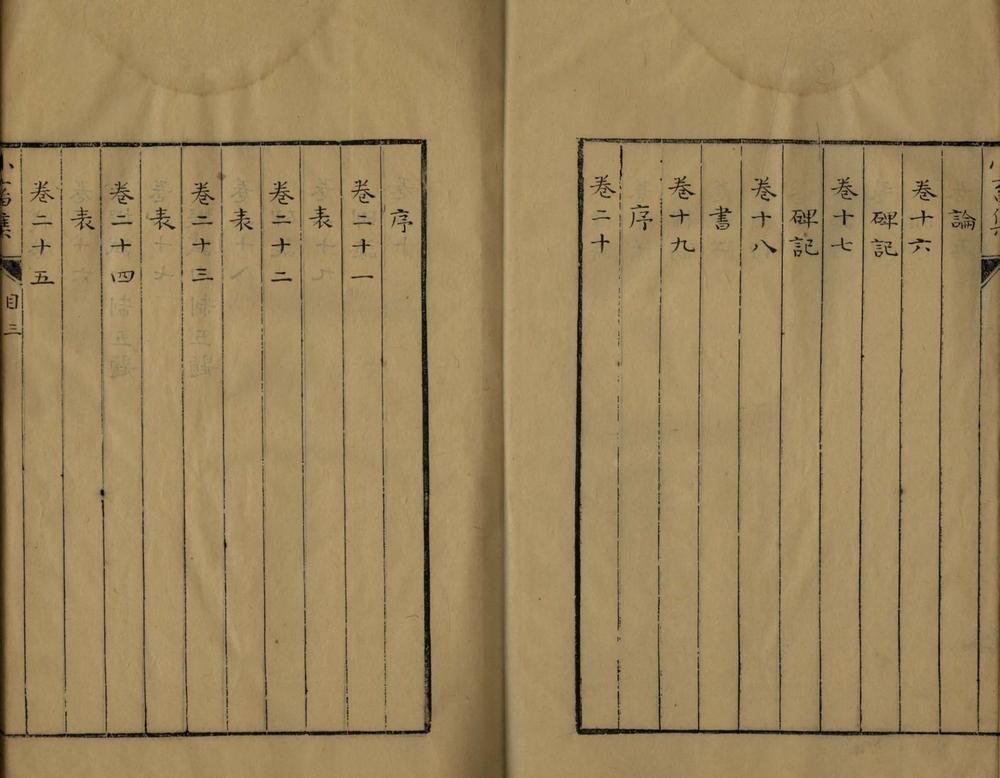 小畜集
論
卷十六
碑記
卷十七
碑記
卷十八
書
卷十九
序
卷二十
序
卷二十一
表
卷二十二
表
卷二十三
表
卷二十四
表
卷二十五
小畜集
目三